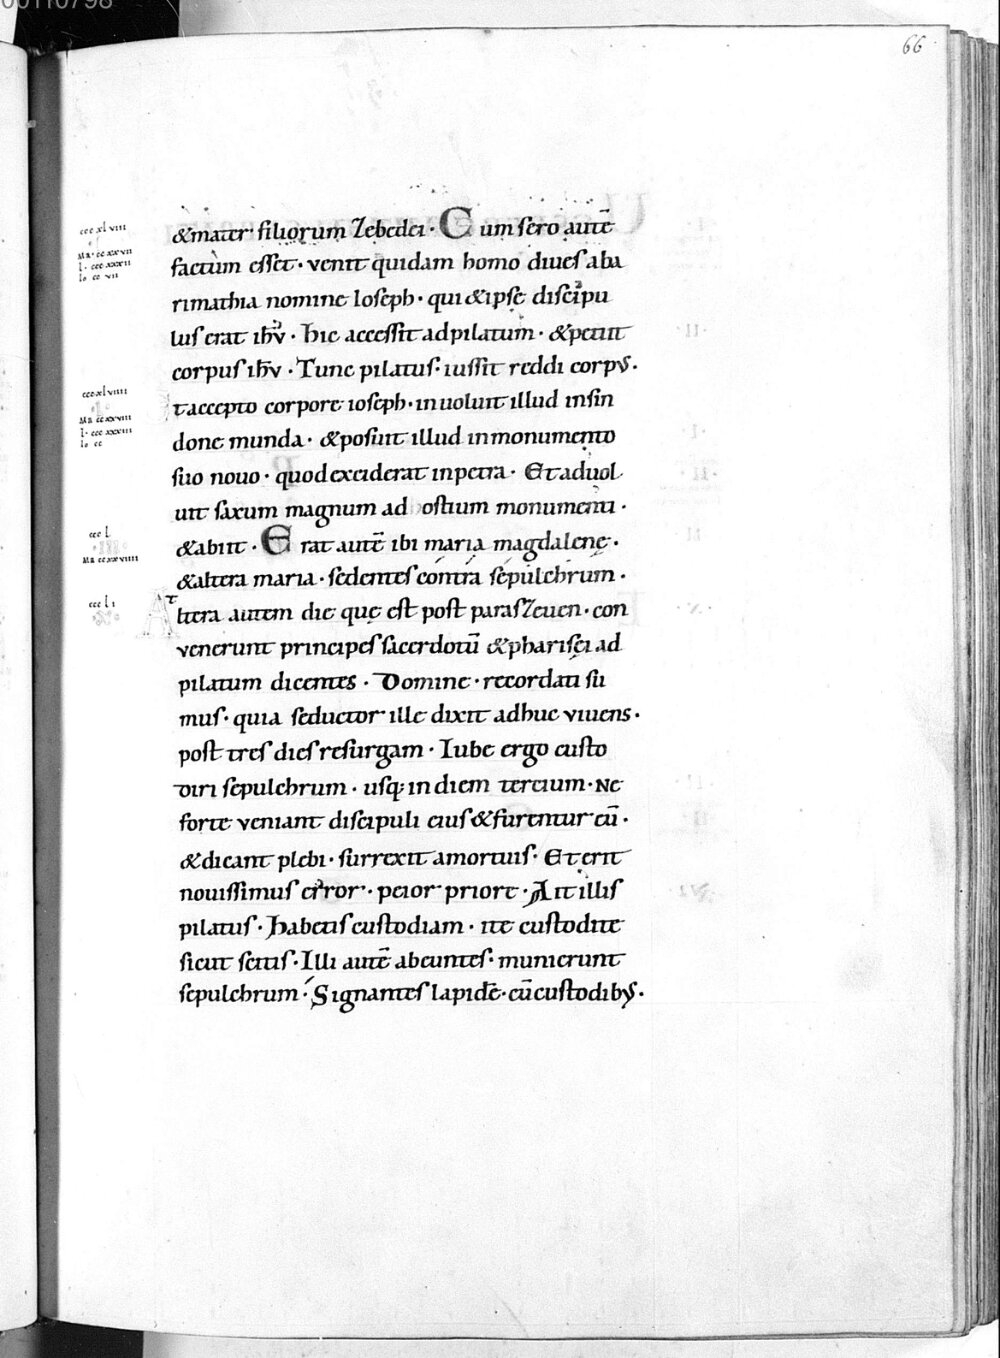 00110798
66
&mater filiorum Zebedei · Cum sero autē
factum esset · venit quidam homo dives aba
rimathia nomine Ioseph · qui &ipse discipu
lus erat ihv̄ · hic accessit adpilatum · &petiit
corpus ihv̄ · Tunc pilatus · iussit reddi corpvs ·
taccepto corpore ioseph · inuoluit illud insin
done munda · &posuit illud inmonumento
suo novo · quod exciderat inpetra · Et aduol
uit saxum magnum ad ostium monumenti ·
&abiit · Erat autē ibi maria magdalenę ·
&altera maria · sedentes contra sepulchrum ·
Altera autem die quę est post parasZeuen · con
venerunt principes sacerdotū &pharisęi ad
pilatum dicentes · Domine · recordati su
mus · quia seductor ille dixit adhuc vivens ·
post tres dies resurgam · Iube ergo custo
diri sepulchrum · usq; indiem tercium · Ne
forte veniant discipuli eius &furentur eū ·
&dicant plebi · surrexit amortuis · Et erit
novissimus error · peior priore · Ait illis
pilatus · habetis custodiam · ite custodite
sicut scitis · Illi autē abeuntes · munierunt
sepulchrum · Signantes lapidē · cū custodibvs ·
ccc xl viii
Ma · cc xx vii
l · ccc xxx ii
Io cc vii
ccc xl viiii
Ma cc xx viii
l · ccc xxx iii
Io cc
ccc l
Ma cc xx viiii
ccc l i